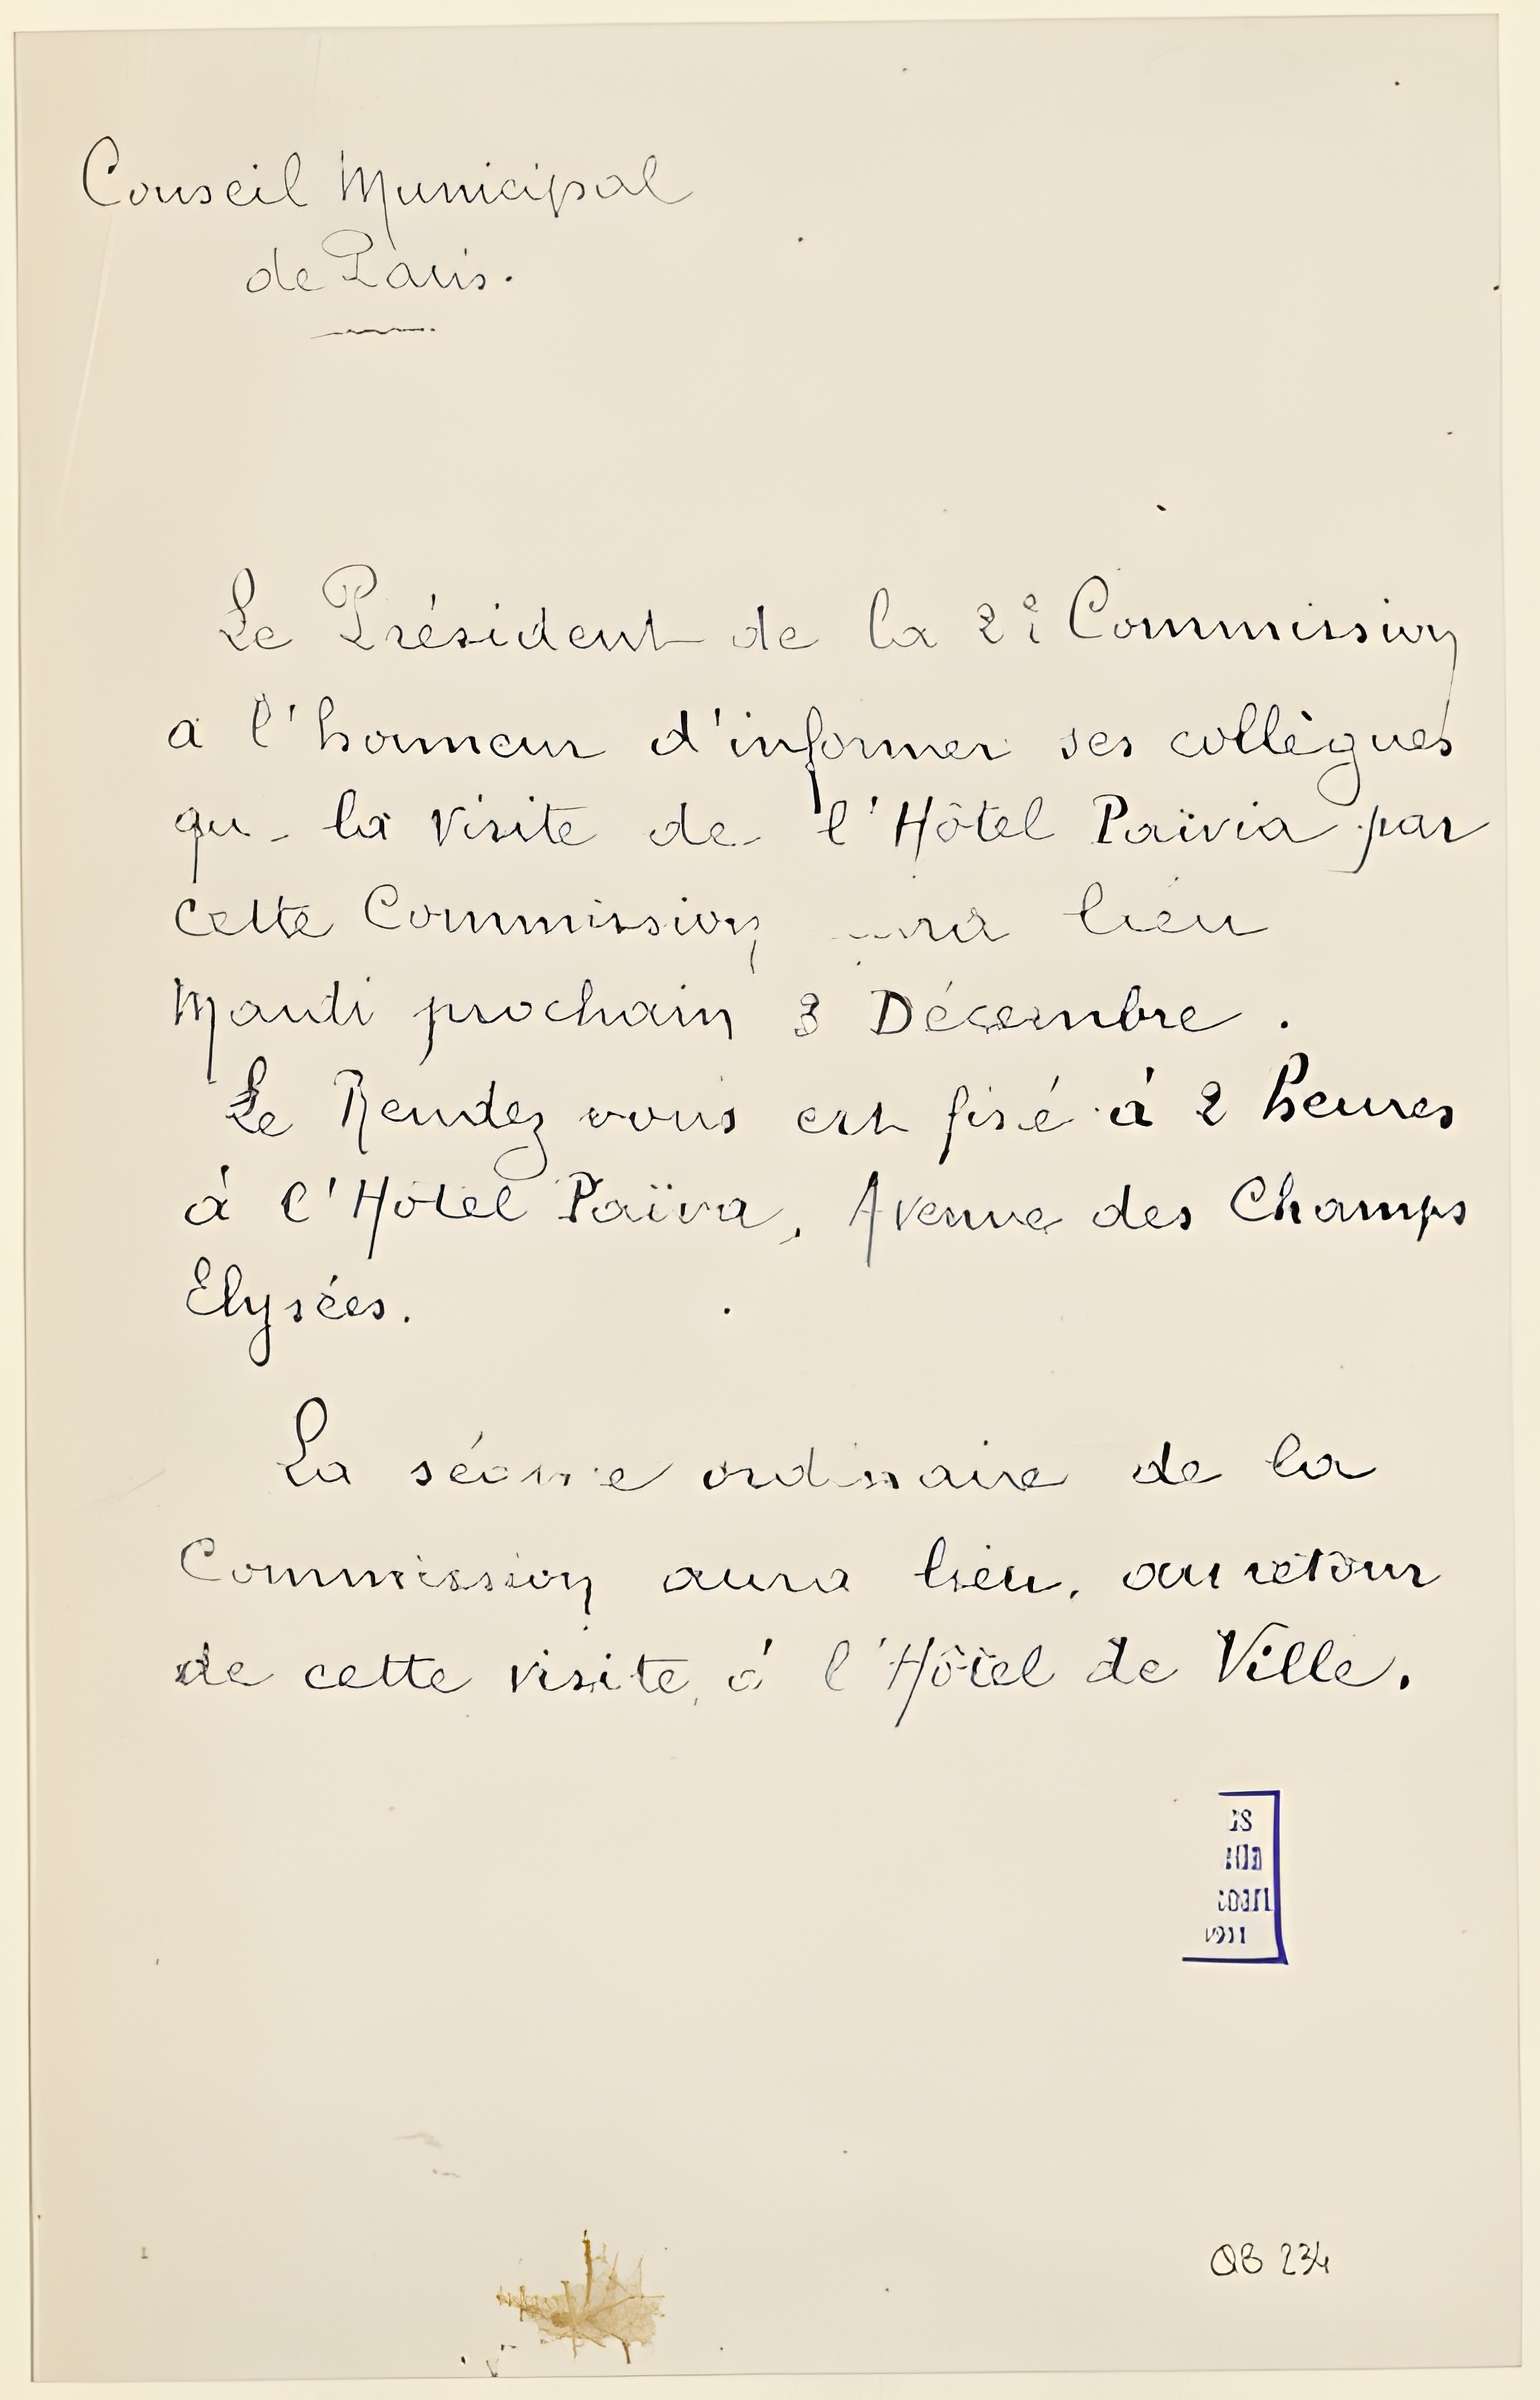 Conseil Municipal
de Paris.
Le Président de la 2e Commission
a l'honneur d'informer ses collègues
qu la visite de l'Hôtel Païvia par
cette Commission lieu
Mardi prochain 3 Décembre.
Le Rendez vous est fixé à 2 heures
à l'Hôtel Païva, Avenue des Champs
Elysées.
La séance ordinaire de la
Commission aura lieu, au retour
de cette visite, à l'Hôtel de Ville.
QB 234